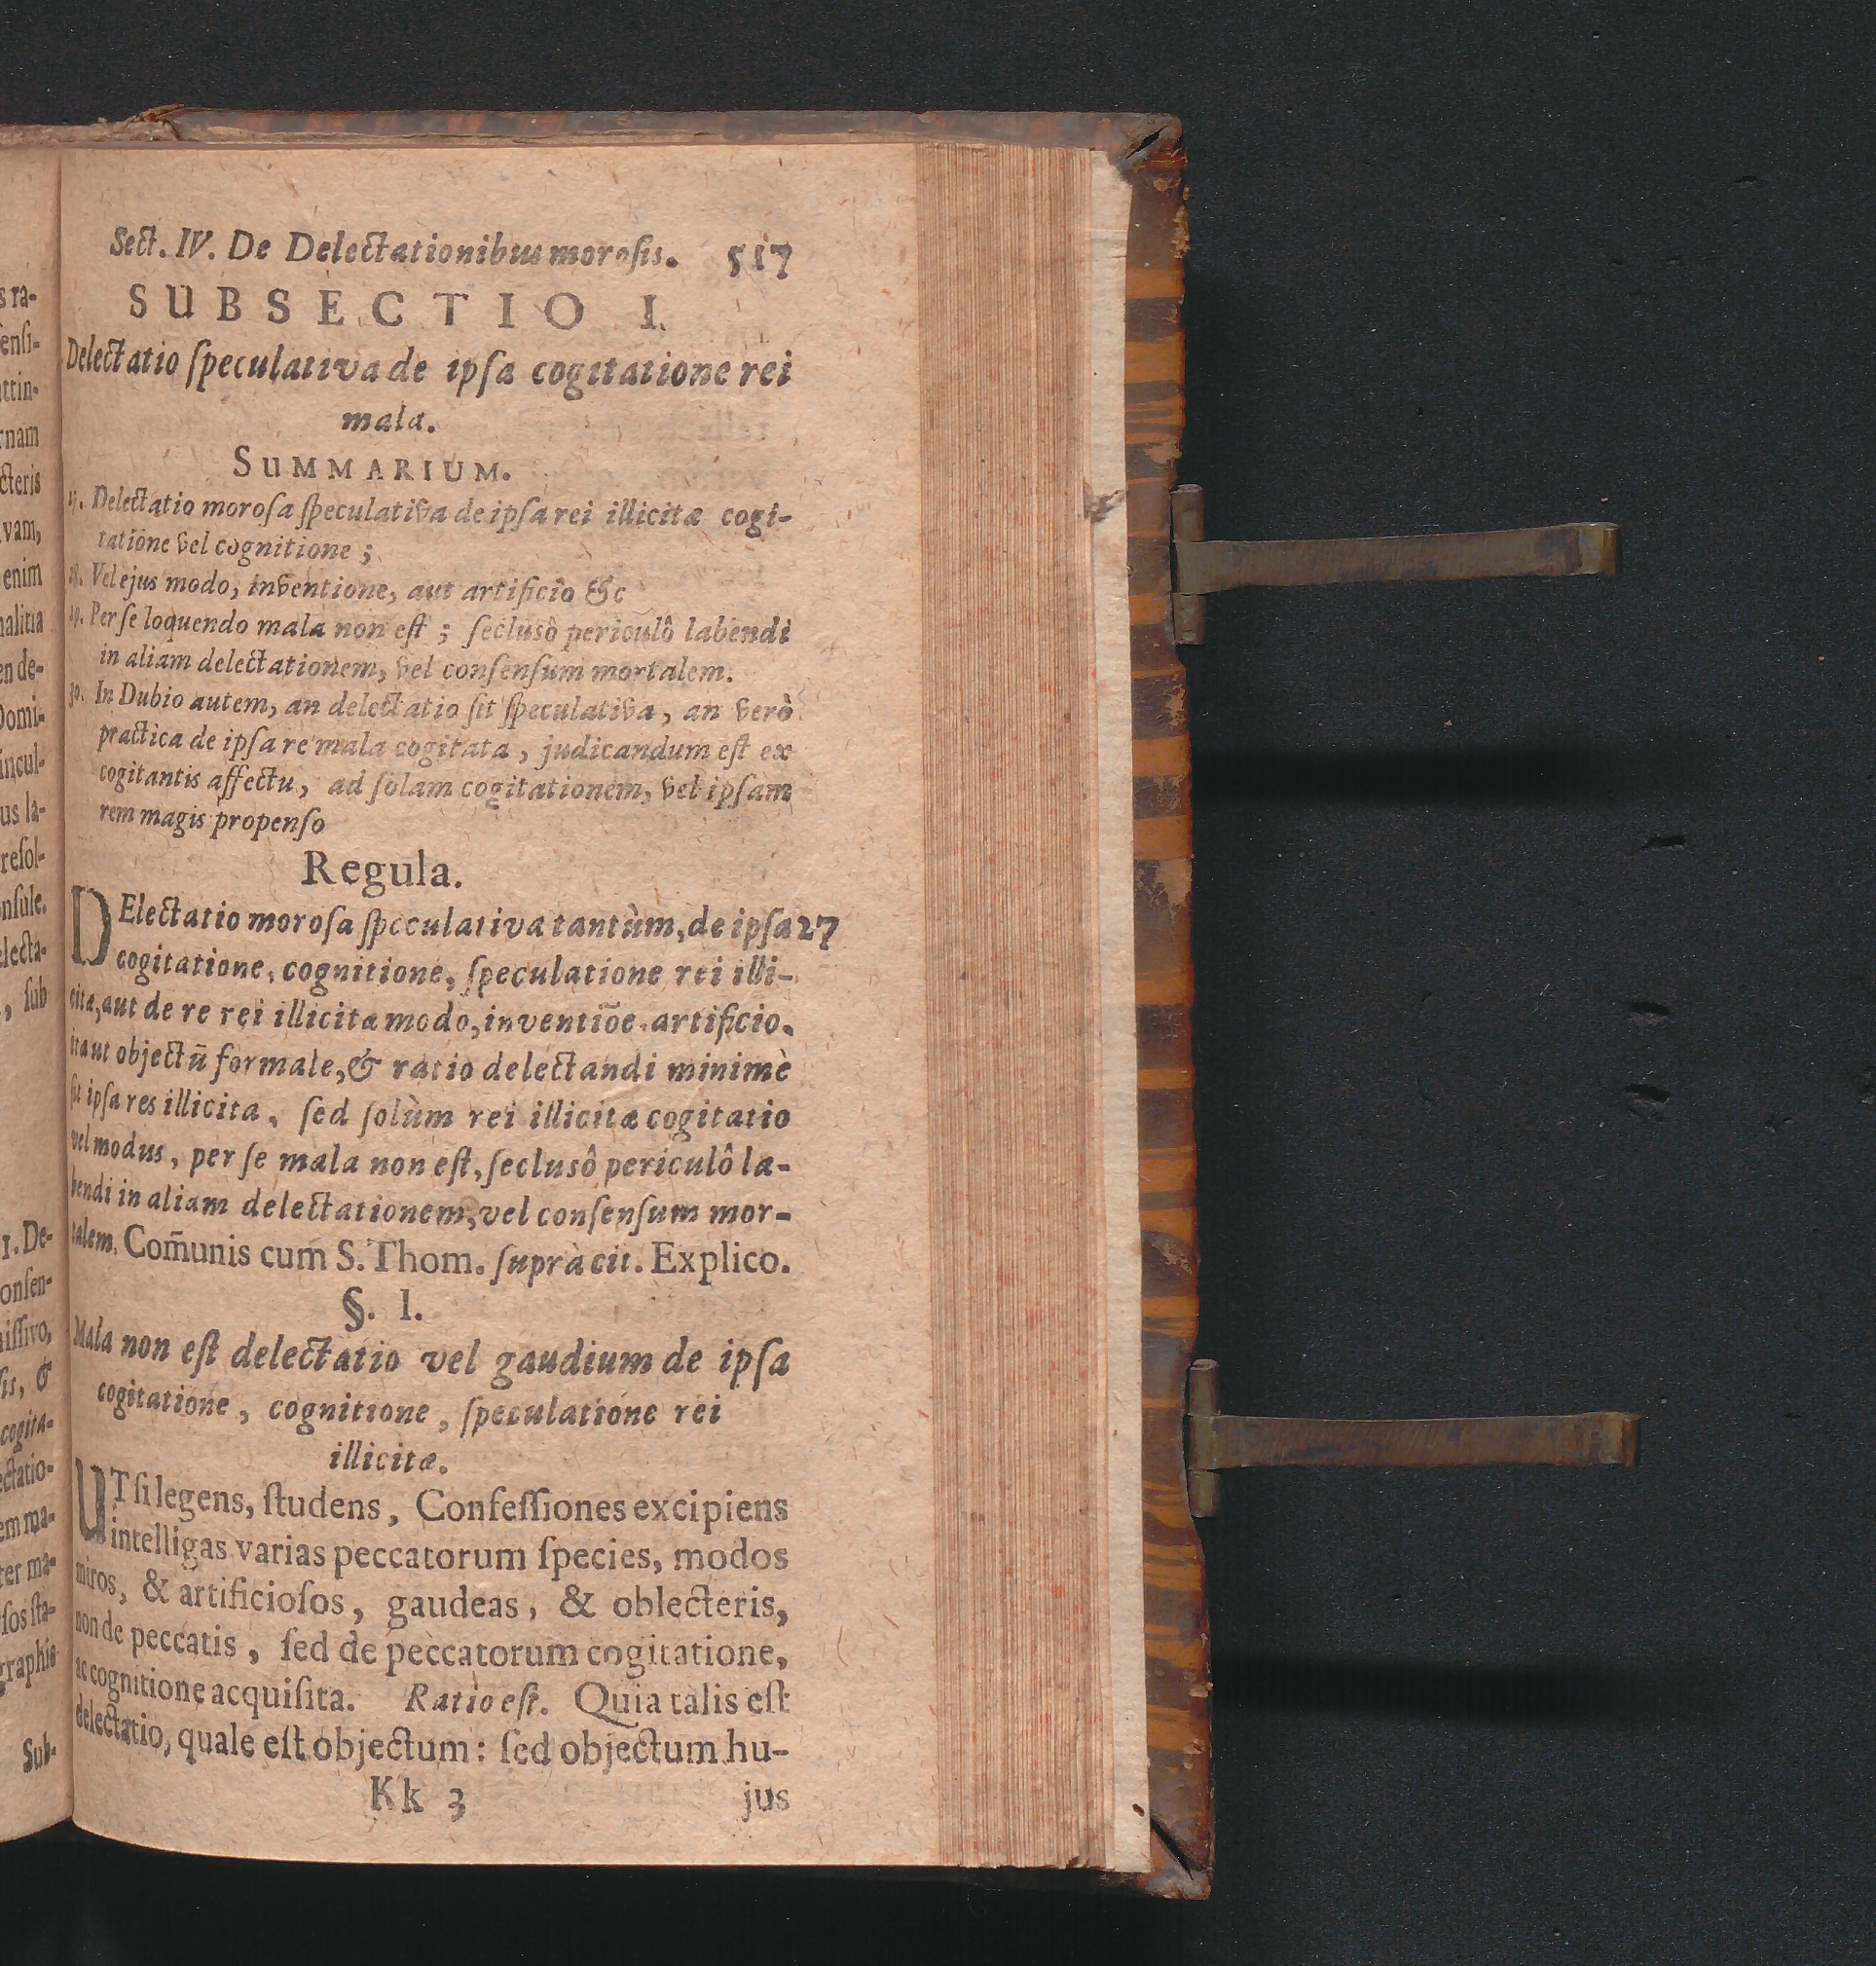 Sect. IV. De Delectationibus morosis. 517
SUBSECTIO I.
Delectatio ſpeculativa de ipſa cogitatione rei
mala.
SUMMARIUM.
Delectatio moroſa ſpeculativa de ipſa rei illicitæ cogi-
tatione vel cognitione ;
Vel ejus modo, inventione, aut artificio &c
Per ſe loquendo mala non eſt ; ſeclusô periculô labendi
in aliam delectationem, vel conſenſum mortalem.
30. In Dubio autem, an delectatio ſit ſpeculativa, an verò
practica de ipſa re mala cogitata, judicandum eſt ex
cogitantis affectu, ad ſolam cogitationem, vel ipſam
rem magis propenſo
Regula.
DElectatio moroſa ſpeculativa tantùm, de ipſa 27
cogitatione, cognitione, ſpeculatione rei illi-
citæ, aut de re rei illicitæ modo, inventiõe, artificio.
ita ut objectũ formale, & ratio delectandi minimè
ſit ipſa res illicita, ſed ſolùm rei illicitæ cogitatio
vel modus, per ſe mala non eſt, ſeclusô periculô la-
bendi in aliam delectationem, vel conſenſum mor-
talem. Com̃unis cum S. Thom. ſuprà cit. Explico.
§. I.
Mala non eſt delectatio vel gaudium de ipſa
cogitatione, cognitione, ſpeculatione rei
illicitæ.
UT ſi legens, ſtudens, Confeſſiones excipiens
intelligas varias peccatorum ſpecies, modos
miros, & artificioſos, gaudeas, & oblecteris,
non de peccatis, ſed de peccatorum cogitatione,
ac cognitione acquiſita. Ratio eſt. Quia talis eſt
delectatio, quale eſt objectum : ſed objectum hu-
Kk 3 jus